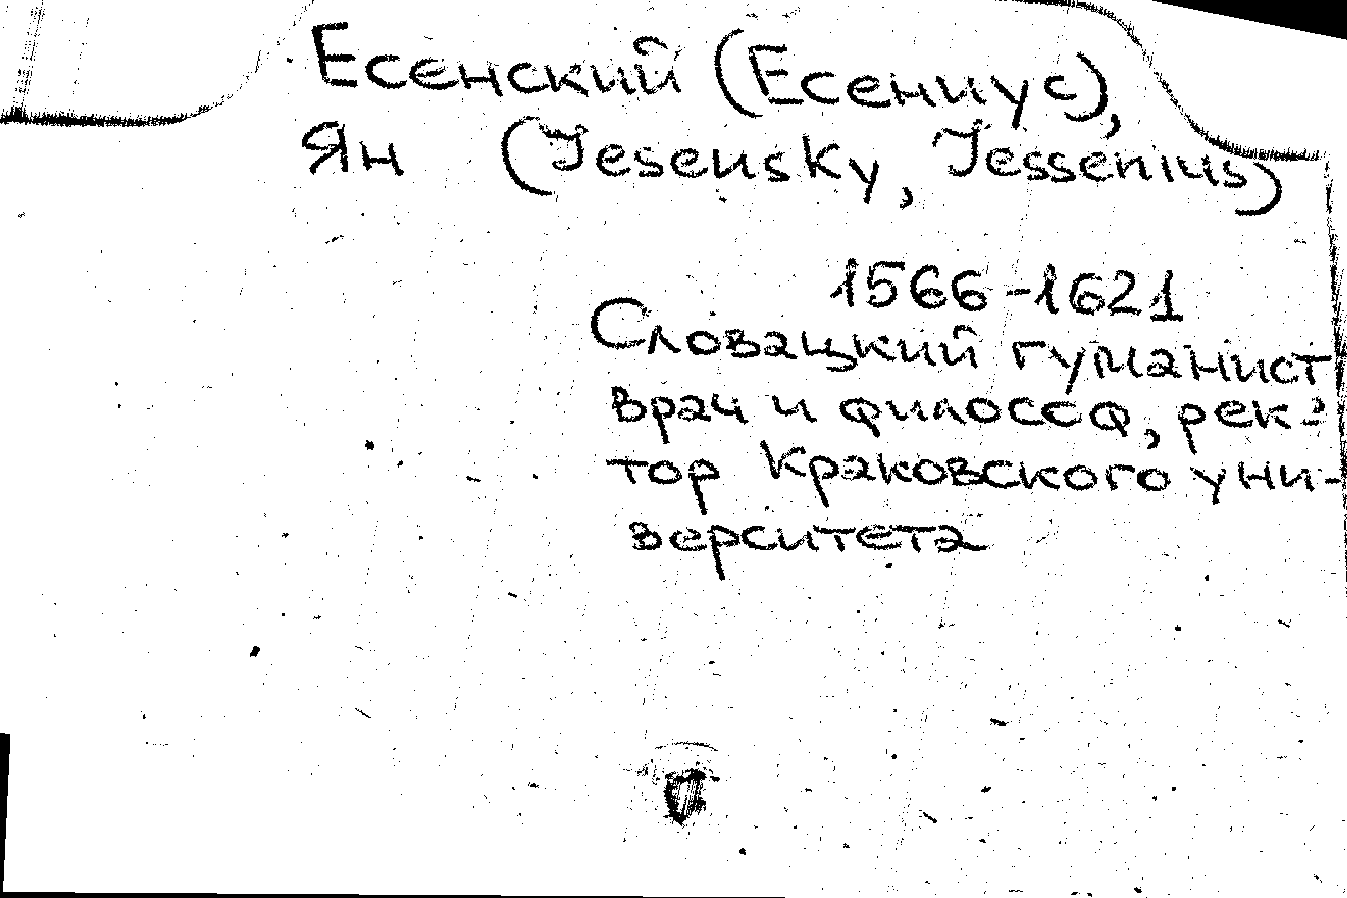 Есенский (Есениус),
Ян (Jesensky, Jessenius)
1566-1621
Словацкий гуманист
врач и философ, рек-
тор Краковского уни-
верситета